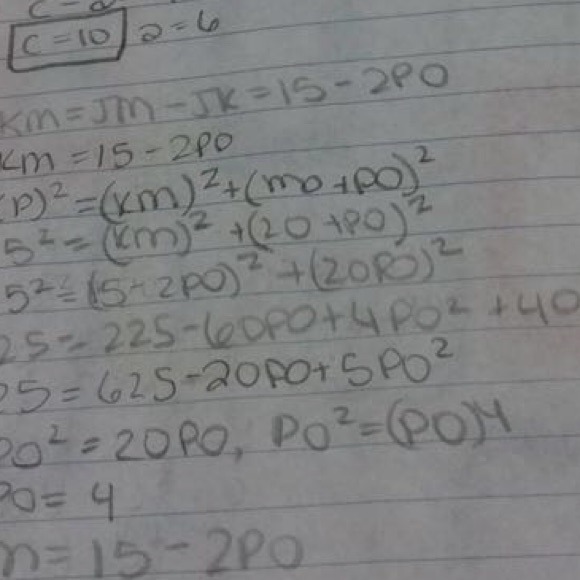 c = 10 2 = 6
KM = JM - JK = 15 - 2PO
KM = 15 - 2PO
P)² = (KM)² + (MO + PO)²
5² = (KM)² + (20 + PO)²
5² = (15 - 2PO)² + (20PO)²
25 = 225 - 60PO + 4PO² + 40
25 = 625 - 20PO + 5PO²
PO² = 20PO, PO² = (PO)4
PO = 4
m = 15 - 2PO